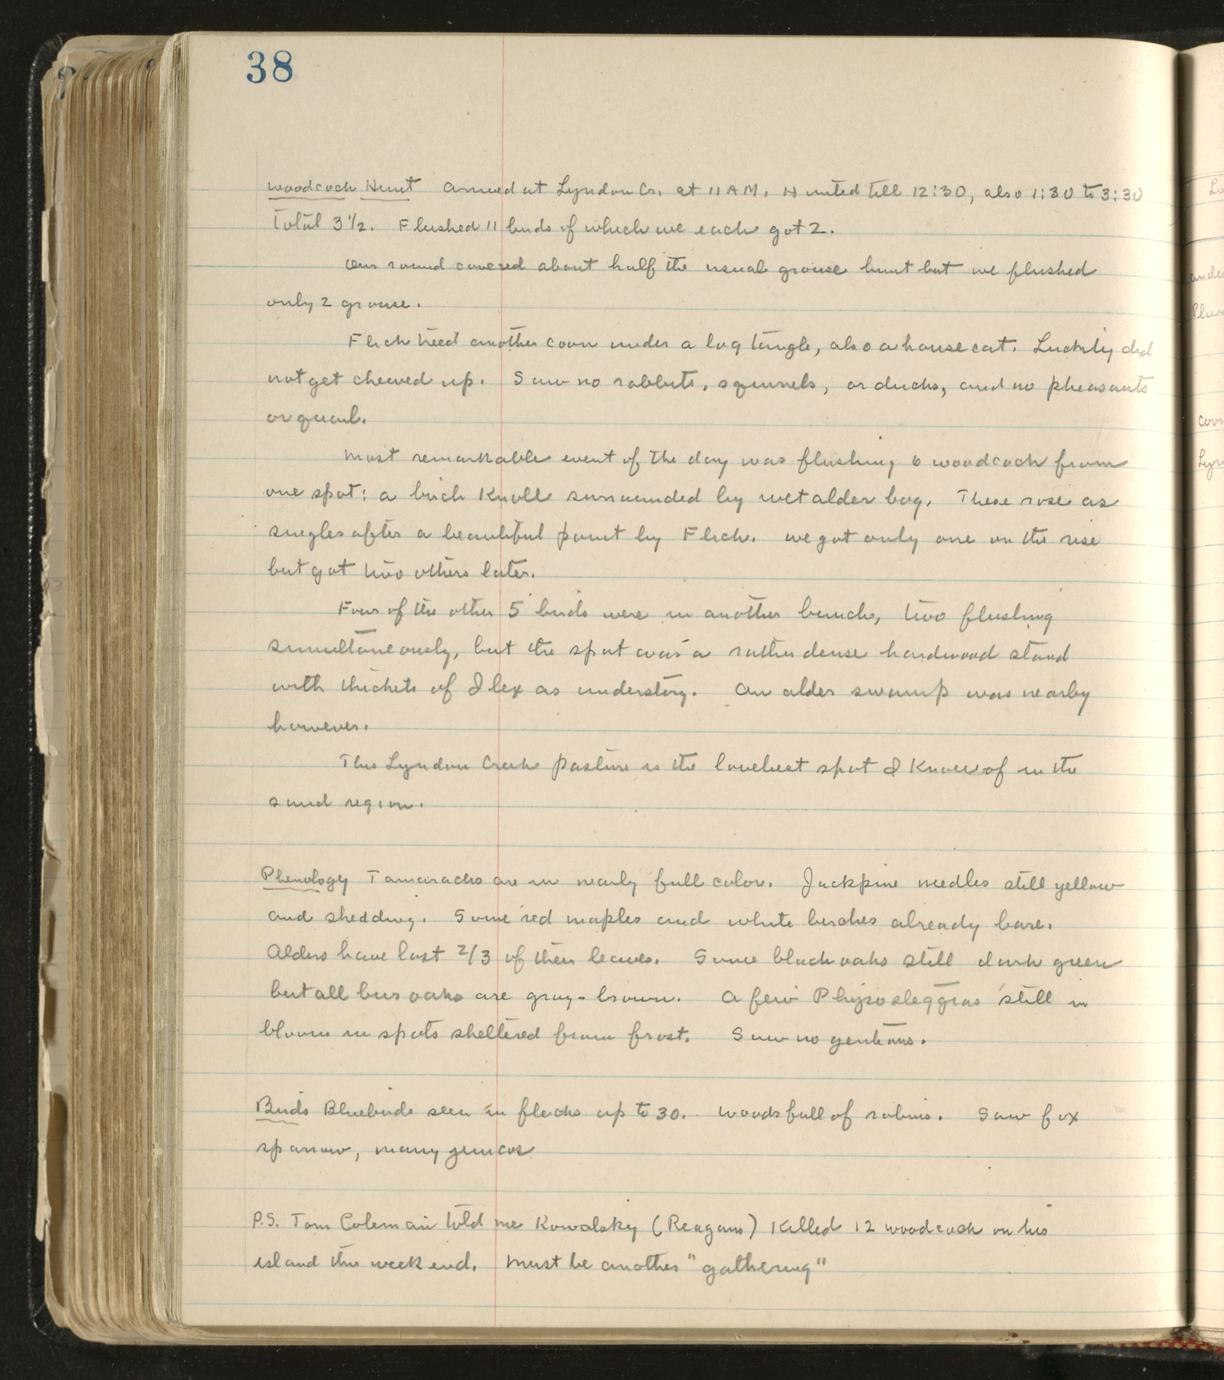 38
Woodcock Hunt Arrived at Lyndon Cr. at 11 AM. Hunted till 12:30, also 1:30 to 3:30
Total 3 1/2. Flushed 11 birds of which we each got 2.
Our round covered about half the usual grouse hunt but we flushed
only 2 grouse.
Flick treed another coon under a log tangle, also a house cat. Luckily did
not get chewed up. Saw no rabbits, squirrels, or ducks, and no pheasants
or quail.
Most remarkable event of the day was flushing 6 woodcock from
one spot: a birch knoll surrounded by wet alder bog. These rose as
singles after a beautiful point by Flick. We got only one on the rise
but got two others later.
Four of the other 5 birds were in another bunch, two flushing
simultaneously, but the spot was a rather dense hardwood stand
with thickets of Ilex as understory. An alder swamp was nearby
however.
This Lyndon Creek pasture is the loveliest spot I know of in the
sand region.
Phenology Tamaracks are in nearly full color. Jackpine needles still yellow
and shedding. Some red maples and white birches already bare.
Alders have lost 2/3 of their leaves. Some black oaks still dark green
but all bur oaks are gray-brown. A few still in
bloom in spots sheltered from frost. Saw no gentians.
Birds Bluebirds seen in flocks up to 30. Woods full of robins. Saw fox
sparrow, many juncos
P.S. Tom Coleman told me Kowalsky (Reagans) killed 12 woodcock on his
island this week end. Must be another "gathering"